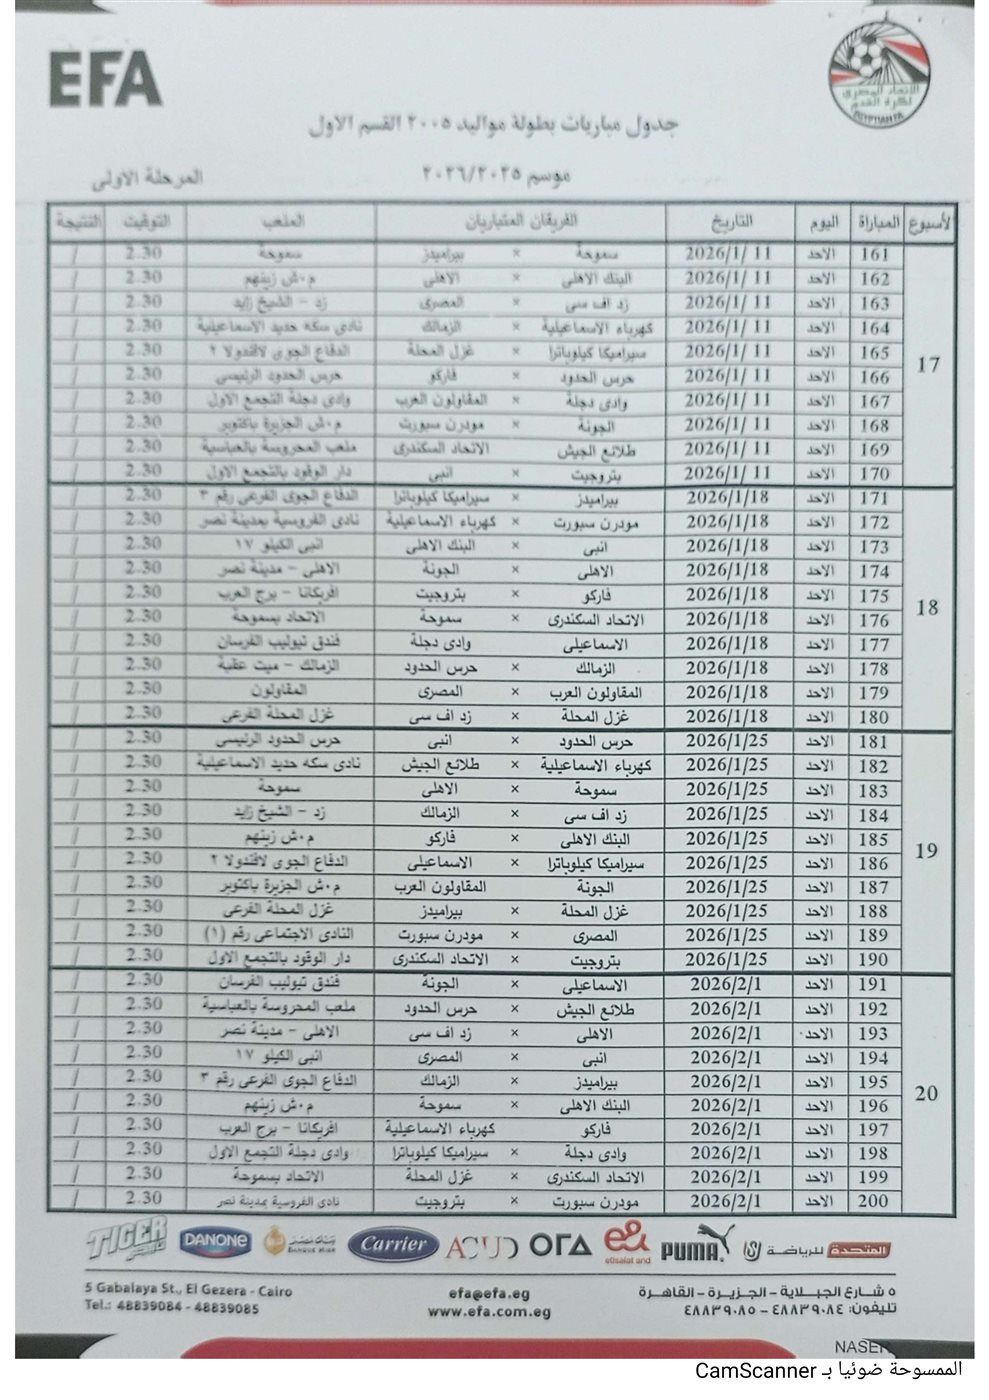 EFA
الاتحاد المصرى
لكرة القدم
EGYPTIAN F.A.
جدول مباريات بطولة مواليد ٢٠٠٥ القسم الاول
موسم ٢٠٢٦/٢٠٢٥
المرحلة الاولى
الأسبوع المباراة اليوم التاريخ الفريقان المتباريان الملعب التوقيت النتيجة
17
161 الاحد 2026/1/ 11 سموحة × بيراميدز سموحة 2.30 /
162 الاحد 2026/1/ 11 البنك الاهلى × الاهلى م.ش زينهم 2.30 /
163 الاحد 2026/1/ 11 زد اف سى × المصرى زد - الشيخ زايد 2.30 /
164 الاحد 2026/1/ 11 كهرباء الاسماعيلية × الزمالك نادى سكه حديد الاسماعيلية 2.30 /
165 الاحد 2026/1/ 11 سيراميكا كيلوباترا × غزل المحلة الدفاع الجوى لافندولا ٢ 2.30 /
166 الاحد 2026/1/ 11 حرس الحدود × فاركو حرس الحدود الرئيسى 2.30 /
167 الاحد 2026/1/ 11 وادى دجلة × المقاولون العرب وادى دجلة التجمع الاول 2.30 /
168 الاحد 2026/1/ 11 الجونة × مودرن سبورت م.ش الجزيرة باكتوبر 2.30 /
169 الاحد 2026/1/ 11 طلائع الجيش × الاتحاد السكندرى ملعب المحروسة بالعباسية 2.30 /
170 الاحد 2026/1/ 11 بتروجيت × انبى دار الوقود بالتجمع الاول 2.30 /
18
171 الاحد 2026/1/18 بيراميدز × سيراميكا كيلوباترا الدفاع الجوى الفرعى رقم ٣ 2.30 /
172 الاحد 2026/1/18 مودرن سبورت × كهرباء الاسماعيلية نادى الفروسية بمدينة نصر 2.30 /
173 الاحد 2026/1/18 انبى × البنك الاهلى انبى الكيلو ١٧ 2.30 /
174 الاحد 2026/1/18 الاهلى × الجونة الاهلى - مدينة نصر 2.30 /
175 الاحد 2026/1/18 فاركو × بتروجيت افريكانا - برج العرب 2.30 /
176 الاحد 2026/1/18 الاتحاد السكندرى × سموحة الاتحاد بسموحة 2.30 /
177 الاحد 2026/1/18 الاسماعيلى × وادى دجلة فندق تيوليب الفرسان 2.30 /
178 الاحد 2026/1/18 الزمالك × حرس الحدود الزمالك - ميت عقبة 2.30 /
179 الاحد 2026/1/18 المقاولون العرب × المصرى المقاولون 2.30 /
180 الاحد 2026/1/18 غزل المحلة × زد اف سى غزل المحلة الفرعى 2.30 /
19
181 الاحد 2026/1/25 حرس الحدود × انبى حرس الحدود الرئيسى 2.30 /
182 الاحد 2026/1/25 كهرباء الاسماعيلية × طلائع الجيش نادى سكه حديد الاسماعيلية 2.30 /
183 الاحد 2026/1/25 سموحة × الاهلى سموحة 2.30 /
184 الاحد 2026/1/25 زد اف سى × الزمالك زد - الشيخ زايد 2.30 /
185 الاحد 2026/1/25 البنك الاهلى × فاركو م.ش زينهم 2.30 /
186 الاحد 2026/1/25 سيراميكا كيلوباترا × الاسماعيلى الدفاع الجوى لافندولا ٢ 2.30 /
187 الاحد 2026/1/25 الجونة × المقاولون العرب م.ش الجزيرة باكتوبر 2.30 /
188 الاحد 2026/1/25 غزل المحلة × بيراميدز غزل المحلة الفرعى 2.30 /
189 الاحد 2026/1/25 المصرى × مودرن سبورت النادى الاجتماعى رقم (١) 2.30 /
190 الاحد 2026/1/25 بتروجيت × الاتحاد السكندرى دار الوقود بالتجمع الاول 2.30 /
20
191 الاحد 2026/2/1 الاسماعيلى × الجونة فندق تيوليب الفرسان 2.30 /
192 الاحد 2026/2/1 طلائع الجيش × حرس الحدود ملعب المحروسة بالعباسية 2.30 /
193 الاحد 2026/2/1 الاهلى × زد اف سى الاهلى - مدينة نصر 2.30 /
194 الاحد 2026/2/1 انبى × المصرى انبى الكيلو ١٧ 2.30 /
195 الاحد 2026/2/1 بيراميدز × الزمالك الدفاع الجوى الفرعى رقم ٣ 2.30 /
196 الاحد 2026/2/1 البنك الاهلى × سموحة م.ش زينهم 2.30 /
197 الاحد 2026/2/1 فاركو × كهرباء الاسماعيلية افريكانا - برج العرب 2.30 /
198 الاحد 2026/2/1 وادى دجلة × سيراميكا كيلوباترا وادى دجلة التجمع الاول 2.30 /
199 الاحد 2026/2/1 الاتحاد السكندرى × غزل المحلة الاتحاد بسموحة 2.30 /
200 الاحد 2026/2/1 مودرن سبورت × بتروجيت نادى الفروسية بمدينة نصر 2.30 /
TIGER DANONE بنك مصر BANQUE MISR Carrier ORA e& etisalat and PUMA المتحدة للرياضة
5 Gabalaya St., El Gezera - Cairo
Tel.: 48839084 - 48839085
efa@efa.eg
www.efa.com.eg
٥ شارع الجبلاية - الجزيرة - القاهرة
تليفون: ٤٨٨٣٩٠٨٤ - ٤٨٨٣٩٠٨٥
NASER
الممسوحة ضوئيا بـ CamScanner